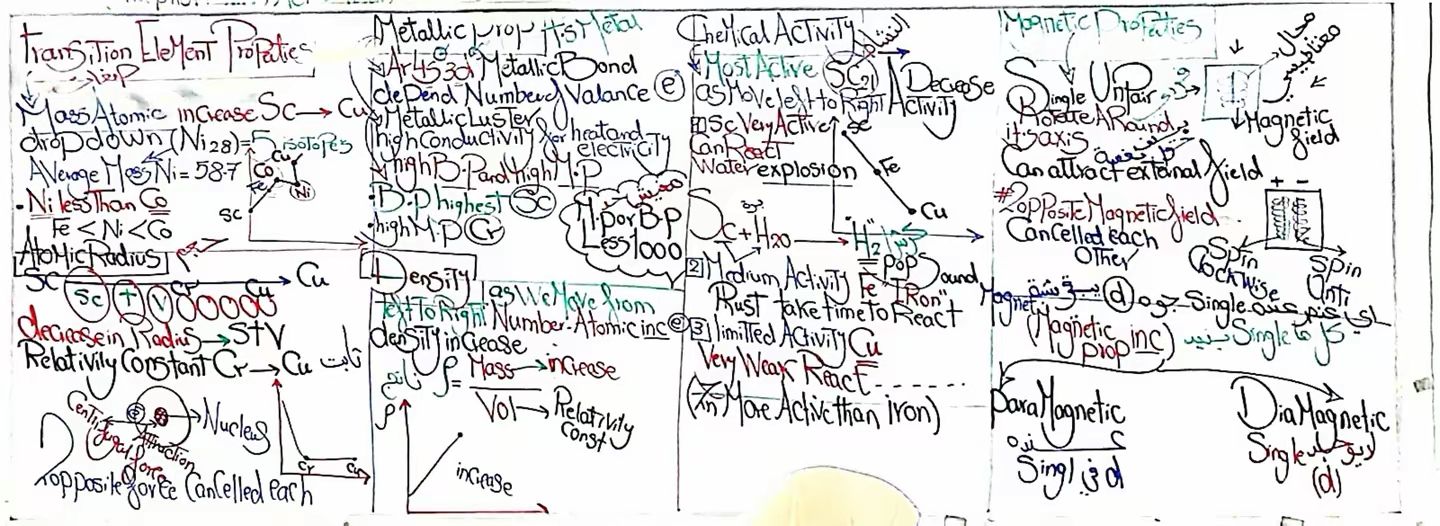 Transition Element Properties
Mass Atomic increase Sc → Cu
drop down (Ni28) = 5 isotopes
Average Mass Ni = 58.7
Cu
Co
Fe
Ni
Sc
. Ni less Than Co
Fe < Ni < Co
Atomic Radius
Sc → Cu
Sc + V Cr Cu
decrease in Radius → S+V
Relativity Constant Cr → Cu ثابت
Centrifugal force
Attraction
Nucleus
2 opposite force Cancelled each
Cr Cu
Metallic prop Its Metal
Ar 4S 3d Metallic Bond
depend Number of Valance e
Metallic Luster
high Conductivity for heat and
electricity
high B.P and high M.P
. B.P highest Sc
. high M.P Cr
M.P or B.P
Less 1000
Density
as We Move from
Left to Right Number Atomic inc
density increase
ρ = Mass → increase
Vol → Relativity
Const
ρ
increase
Chemical Activity
Most Active Sc21
as Move left to Right
Decrease
Activity
1 Sc Very Active
Can React
Water explosion
Sc
Fe
Cu
Sc + H2O → H2
"Pop Sound"
2 Medium Activity Fe "IRon"
Rust take time to React
3 limitted Activity Cu
Very Weak React - - - - - -
(Zn More Active than iron)
Magnetic Properties
Single UnPair
Rotate ARound
its axis
مجال
مغناطيسي
Magnetic
field
Can attract external field
#2 opposite Magnetic field
Cancelled each
Other
+ -
Spin
Clockwise
Spin
Anti
(Magnetic
prop inc)
Para Magnetic
Singl في d
Dia Magnetic
لا يوجد Single
(d)